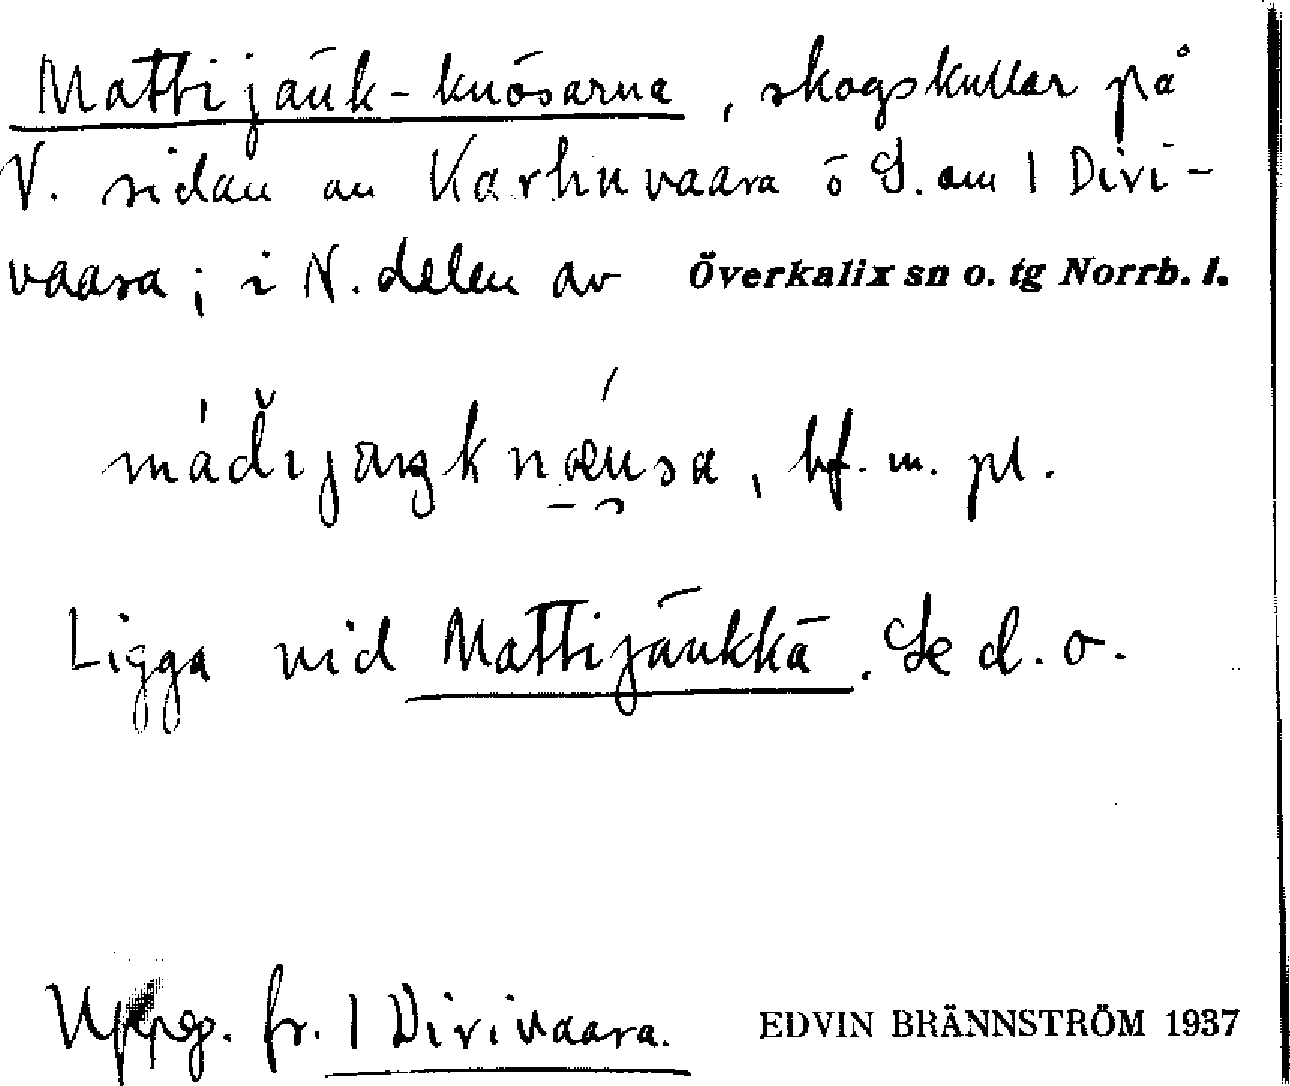 Mattijänk-knösarna, skogskullar på
V. sidan av Karhuvaara ö S. om 1 Divi-
vaara; i N. delen av Överkalix sn o. tg Norrb. l.
bf. m. pl.
Ligga vid Mattijänkkä. Se d. o.
Uppg. fr. 1 Divivaara.
EDVIN BRÄNNSTRÖM 1937